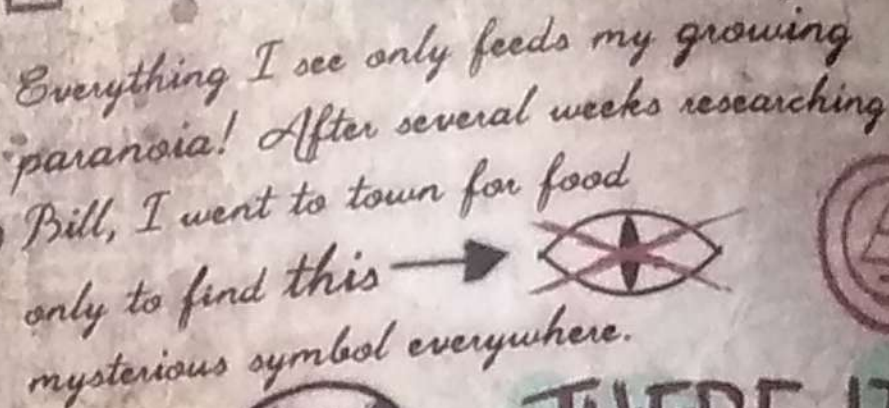 Everything I see only feeds my growing
paranoia! After several weeks researching
Bill, I went to town for food
only to find this
mysterious symbol everywhere.